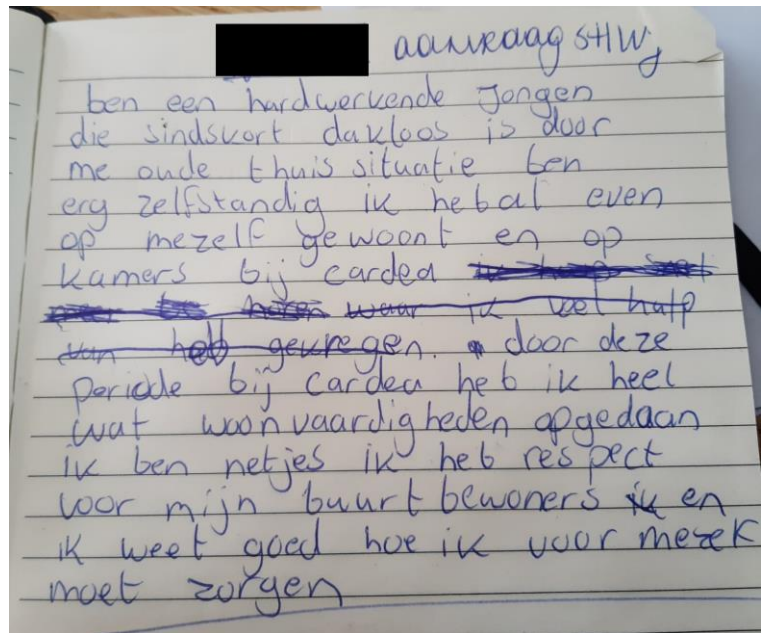 aanvraag SHWJ
ben een hardwerkende Jongen
die sindskort dakloos is door
me oude thuis situatie ben
erg zelfstandig ik heb al even
op mezelf gewoont en op
kamers bij cardea
waar ik veel hulp
van heb gekregen. door deze
periode bij cardea heb ik heel
wat woonvaardigheden opgedaan
ik ben netjes ik heb respect
voor mijn buurtbewoners ik en
ik weet goed hoe ik voor mezelf
moet zorgen